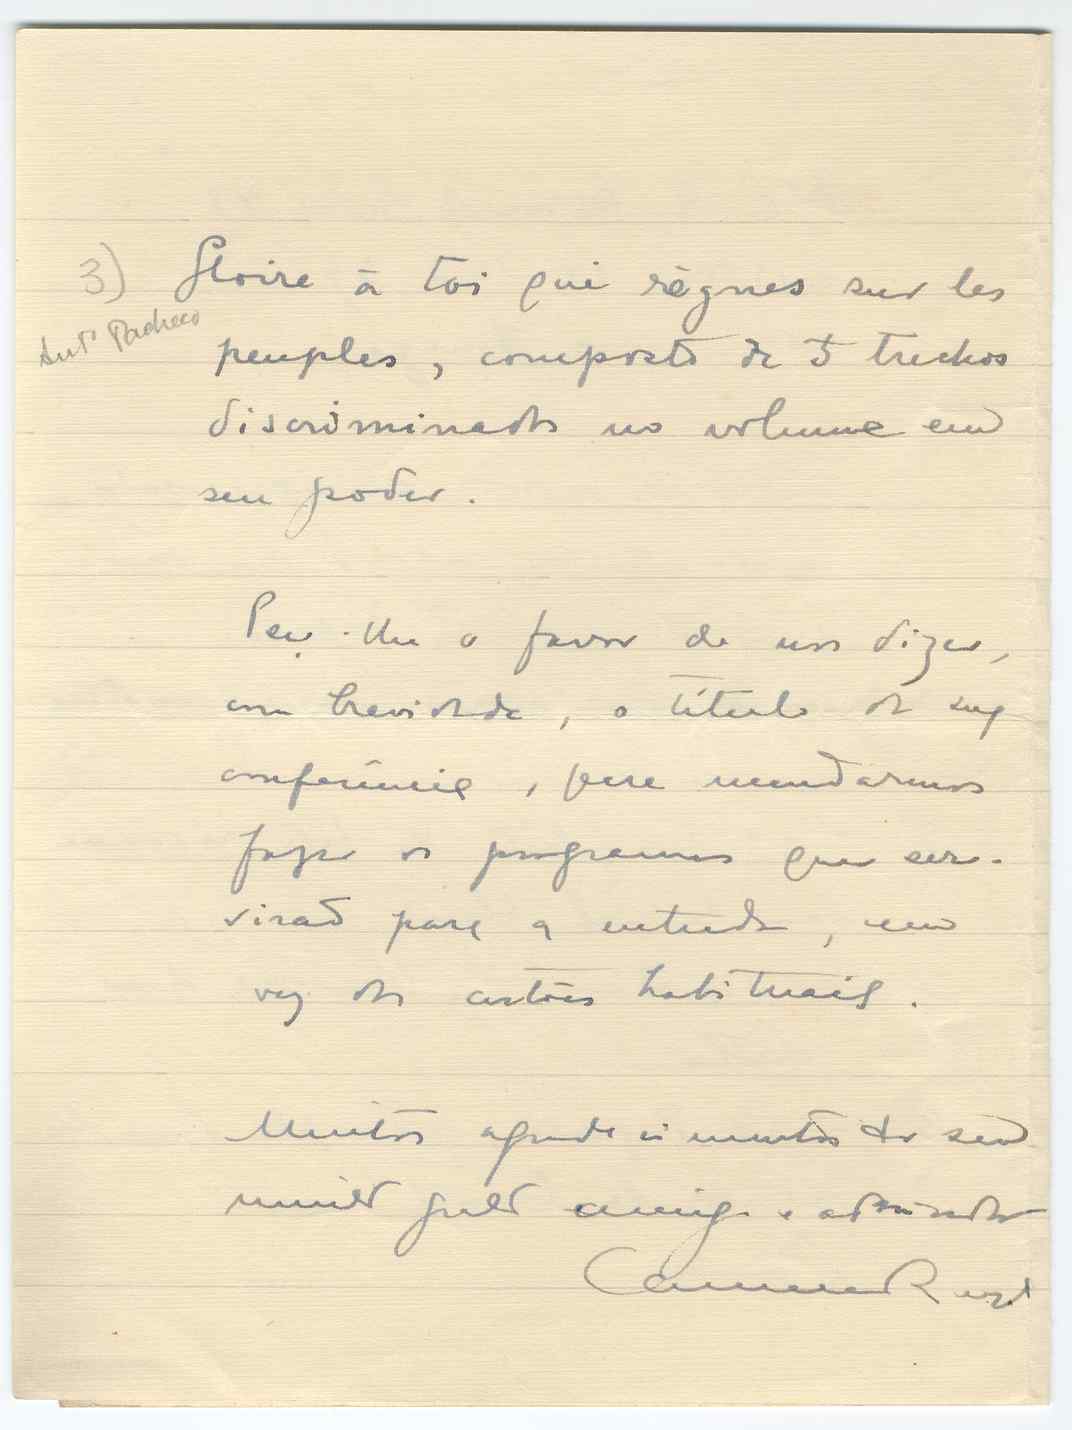 3) Gloire à toi qui règnes sur les
Antº Pacheco
peuples, composto de 5 trechos
discriminados no volume em
seu poder.
Peço-lhe o favor de nos dizer,
com brevidade, o título da sua
conferência, para mandarmos
fazer os programas que ser-
virão para a entrada, em
vez dos cartões habituais.
Muitos agradecimentos do seu
muito grato amigo e admirador